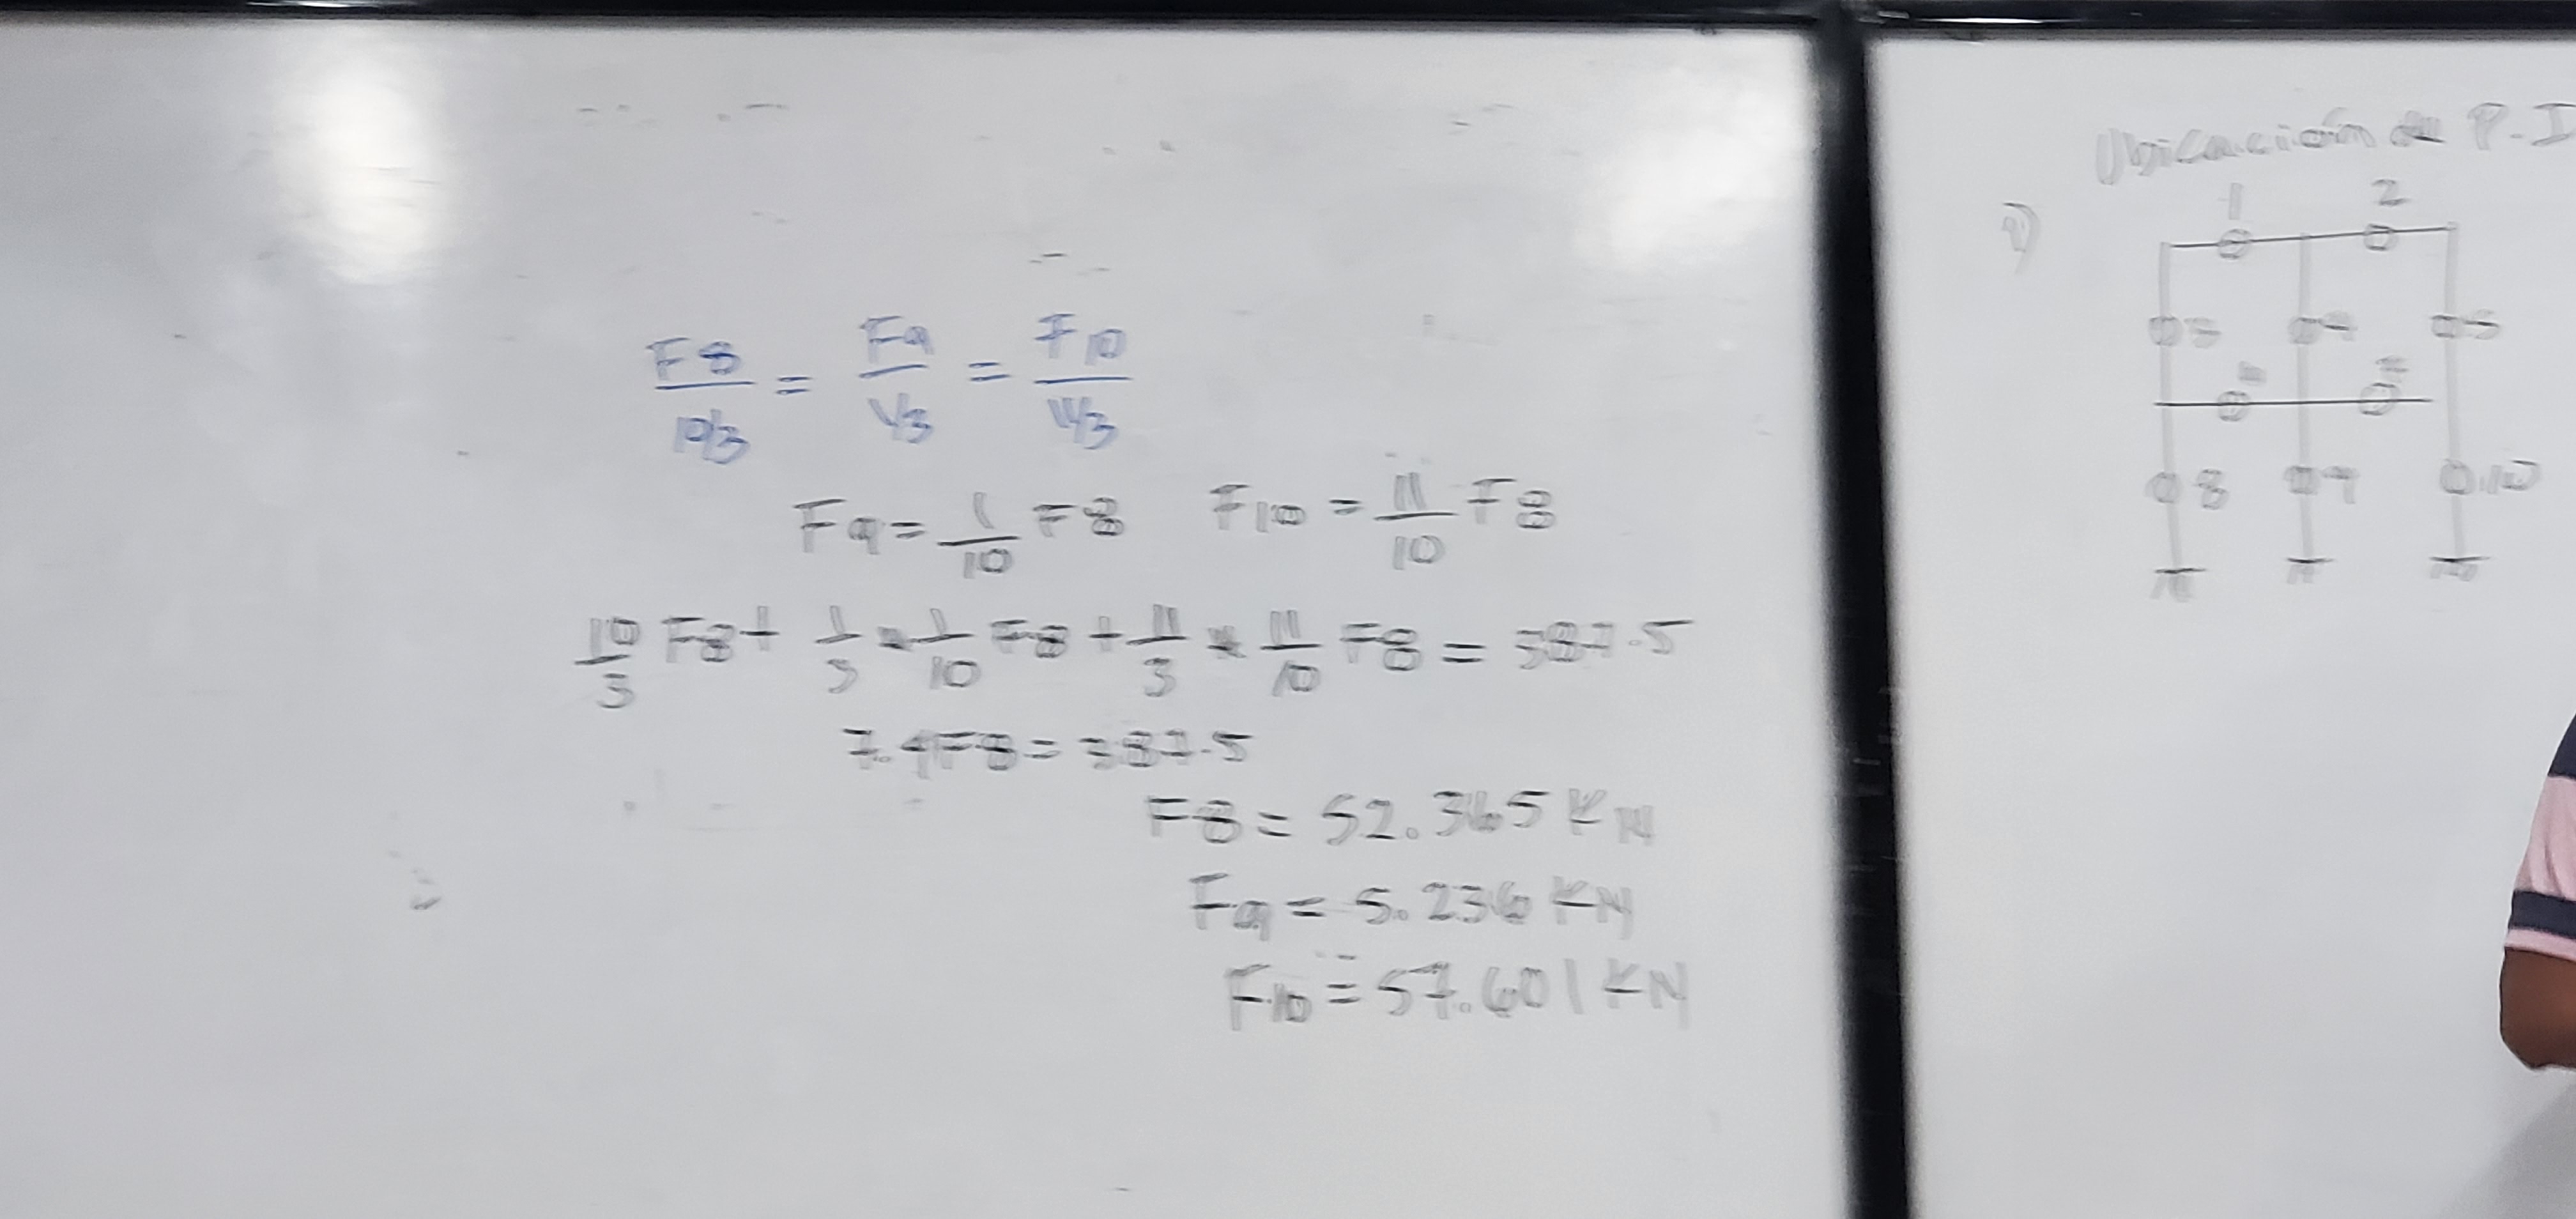 F8/10/3 = F9/1/3 = F10/11/3
F9 = 1/10 F8 F10 = 11/10 F8
10/3 F8 + 1/3 * 1/10 F8 + 11/3 * 11/10 F8 = 387.5
7.4F8 = 387.5
F8 = 52.365 KN
F9 = 5.236 KN
F10 = 57.601 KN
Ubicación de P.I
1 2
3 4 5
8 9 10